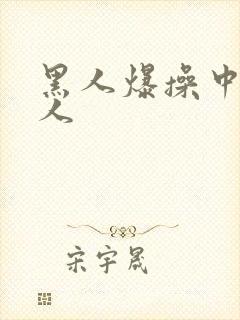 黑人爆操中
人
宋宇晟